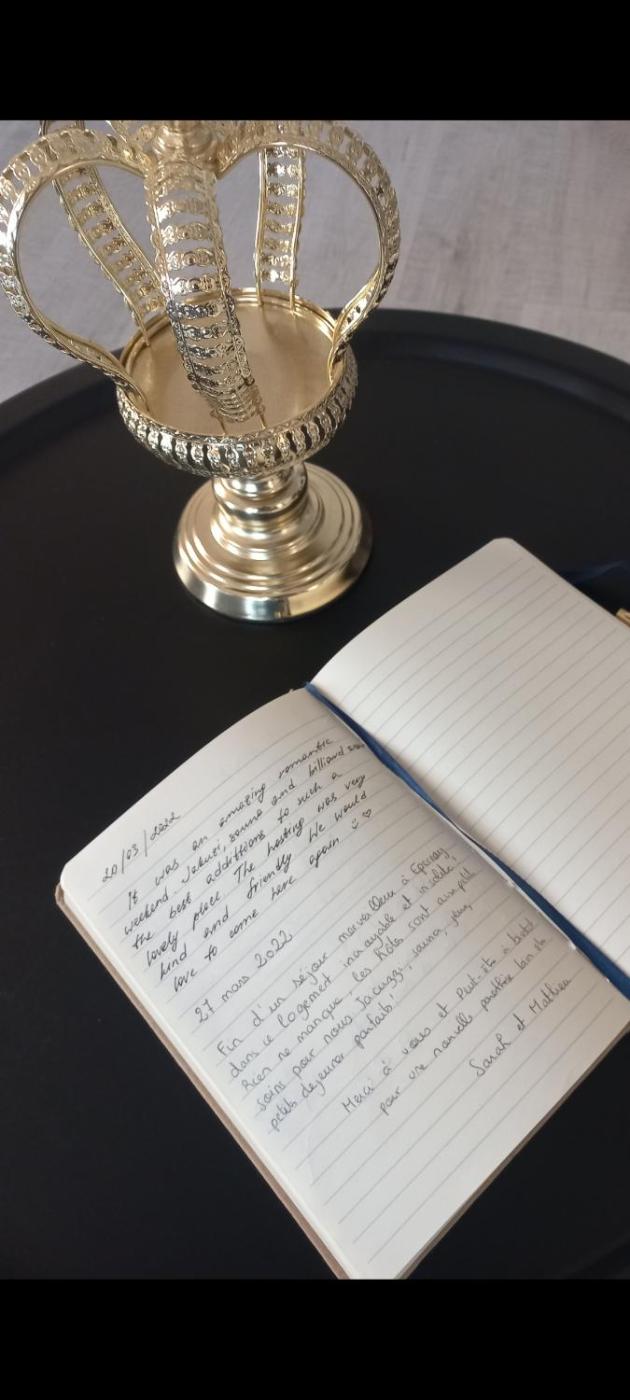 20/03/2022
It was an amazing romantic
weekend. Jakuzi, sauna and billiard
the best additions to such a
lovely place. The hosting was very
kind and friendly. We would
love to come here again
27 mars 2022
Fin d'un séjour merveilleux à Epernay
dans ce logement incroyable et insolite,
Rien ne manque, les hôtes sont aux petit
soins pour nous Jacuzzi, sauna, jeux,
petits dejeuner parfaits!
Merci à vous et Peut-être à bientôt
pour une nouvelle
Sarah et Mathieu